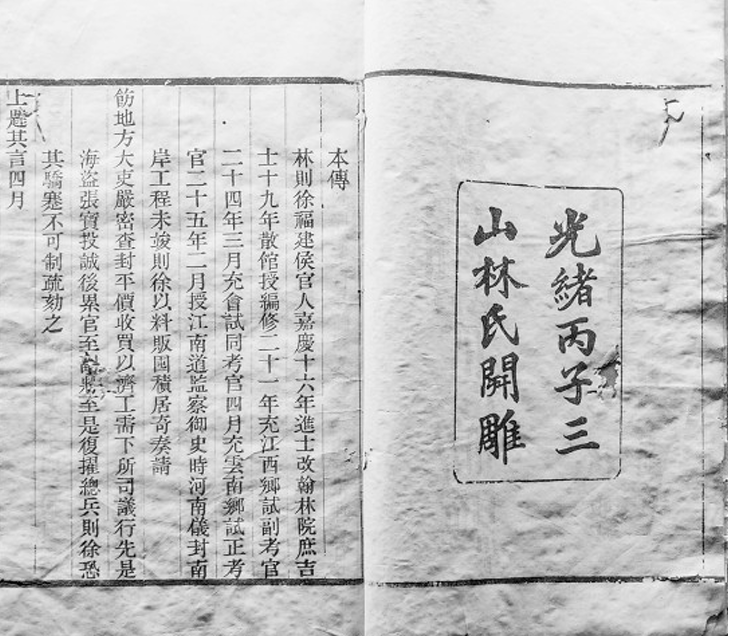 光緒丙子三
山林氏開雕
本傳
林則徐福建侯官人嘉慶十六年進士改翰林院庶吉
士十九年散館授編修二十一年充江西鄉試副考官
二十四年三月充會試同考官四月充雲南鄉試正考
官二十五年二月授江南道監察御史時河南儀封南
岸工程未竣則徐以料販囤積居奇奏請
飭地方大吏嚴密查封平價收買以濟工需下所司議行先是
海盜張寶投誠後累官至副將至是復擢總兵則徐恐
其驕蹇不可制疏劾之
上韙其言四月